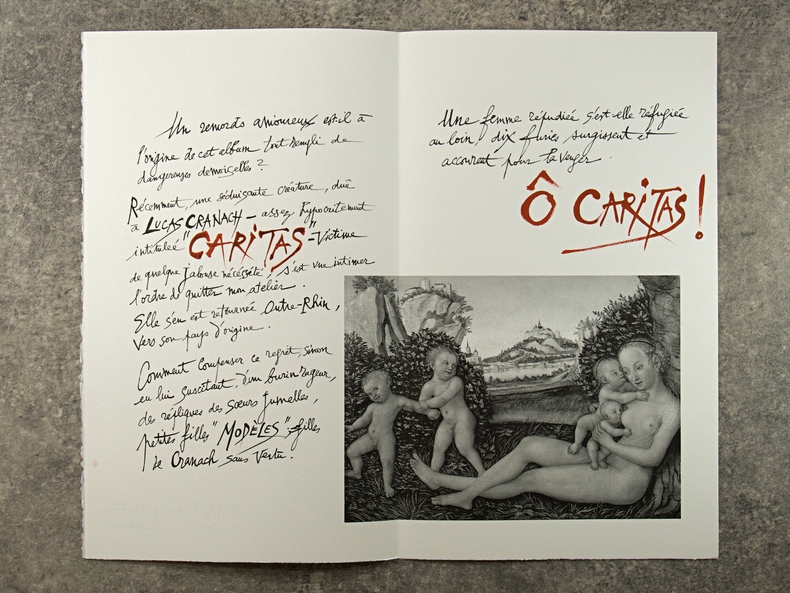 Un remords amoureux est-il à
l'origine de cet album tout rempli de
dangereuses demoiselles ?
Récemment, une séduisante créature, due
à LUCAS CRANACH - assez hypocritement
intitulée "CARITAS" - Victime
de quelque jalouse nécessité, s'est vue intimer
l'ordre de quitter mon atelier.
Elle s'en est retournée Outre-Rhin,
vers son pays d'origine.
Comment compenser ce regret, sinon
en lui suscitant, d'un burin rageur,
des répliques des Sœurs Jumelles,
petites filles "MODÈLES" - filles
de Cranach sans vertu.
Une femme répudiée s'est-elle réfugiée
au loin, dix furies surgissent et
accourent pour la venger.
Ô CARITAS !